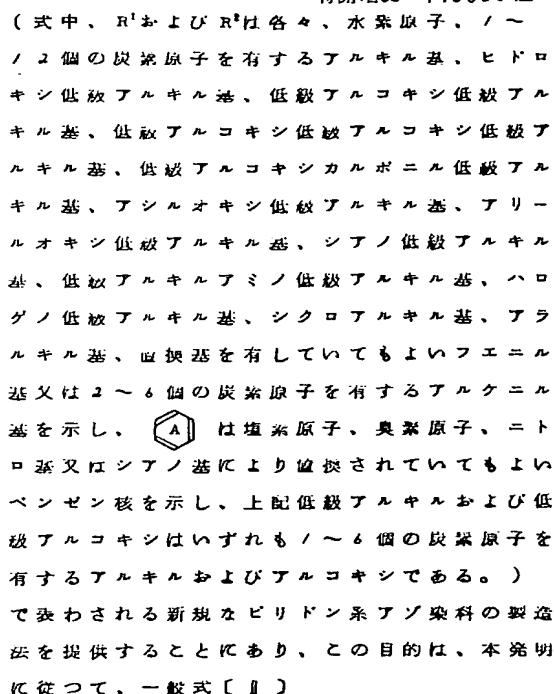 (式中、R¹およびR²は各々、水素原子、1～
12個の炭素原子を有するアルキル基、ヒドロ
キシ低級アルキル基、低級アルコキシ低級アル
キル基、低級アルコキシ低級アルコキシ低級ア
ルキル基、低級アルコキシカルボニル低級アル
キル基、アシルオキシ低級アルキル基、アリー
ルオキシ低級アルキル基、シアノ低級アルキル
基、低級アルキルアミノ低級アルキル基、ハロ
ゲノ低級アルキル基、シクロアルキル基、アラ
ルキル基、置換基を有していてもよいフエニル
基又は2～6個の炭素原子を有するアルケニル
基を示し、 A は塩素原子、臭素原子、ニト
ロ基又はシアノ基により置換されていてもよい
ベンゼン核を示し、上記低級アルキルおよび低
級アルコキシはいずれも1～6個の炭素原子を
有するアルキルおよびアルコキシである。)
で表わされる新規なピリドン系アゾ染料の製造
法を提供することにあり、この目的は、本発明
に従つて、一般式〔Ⅱ〕